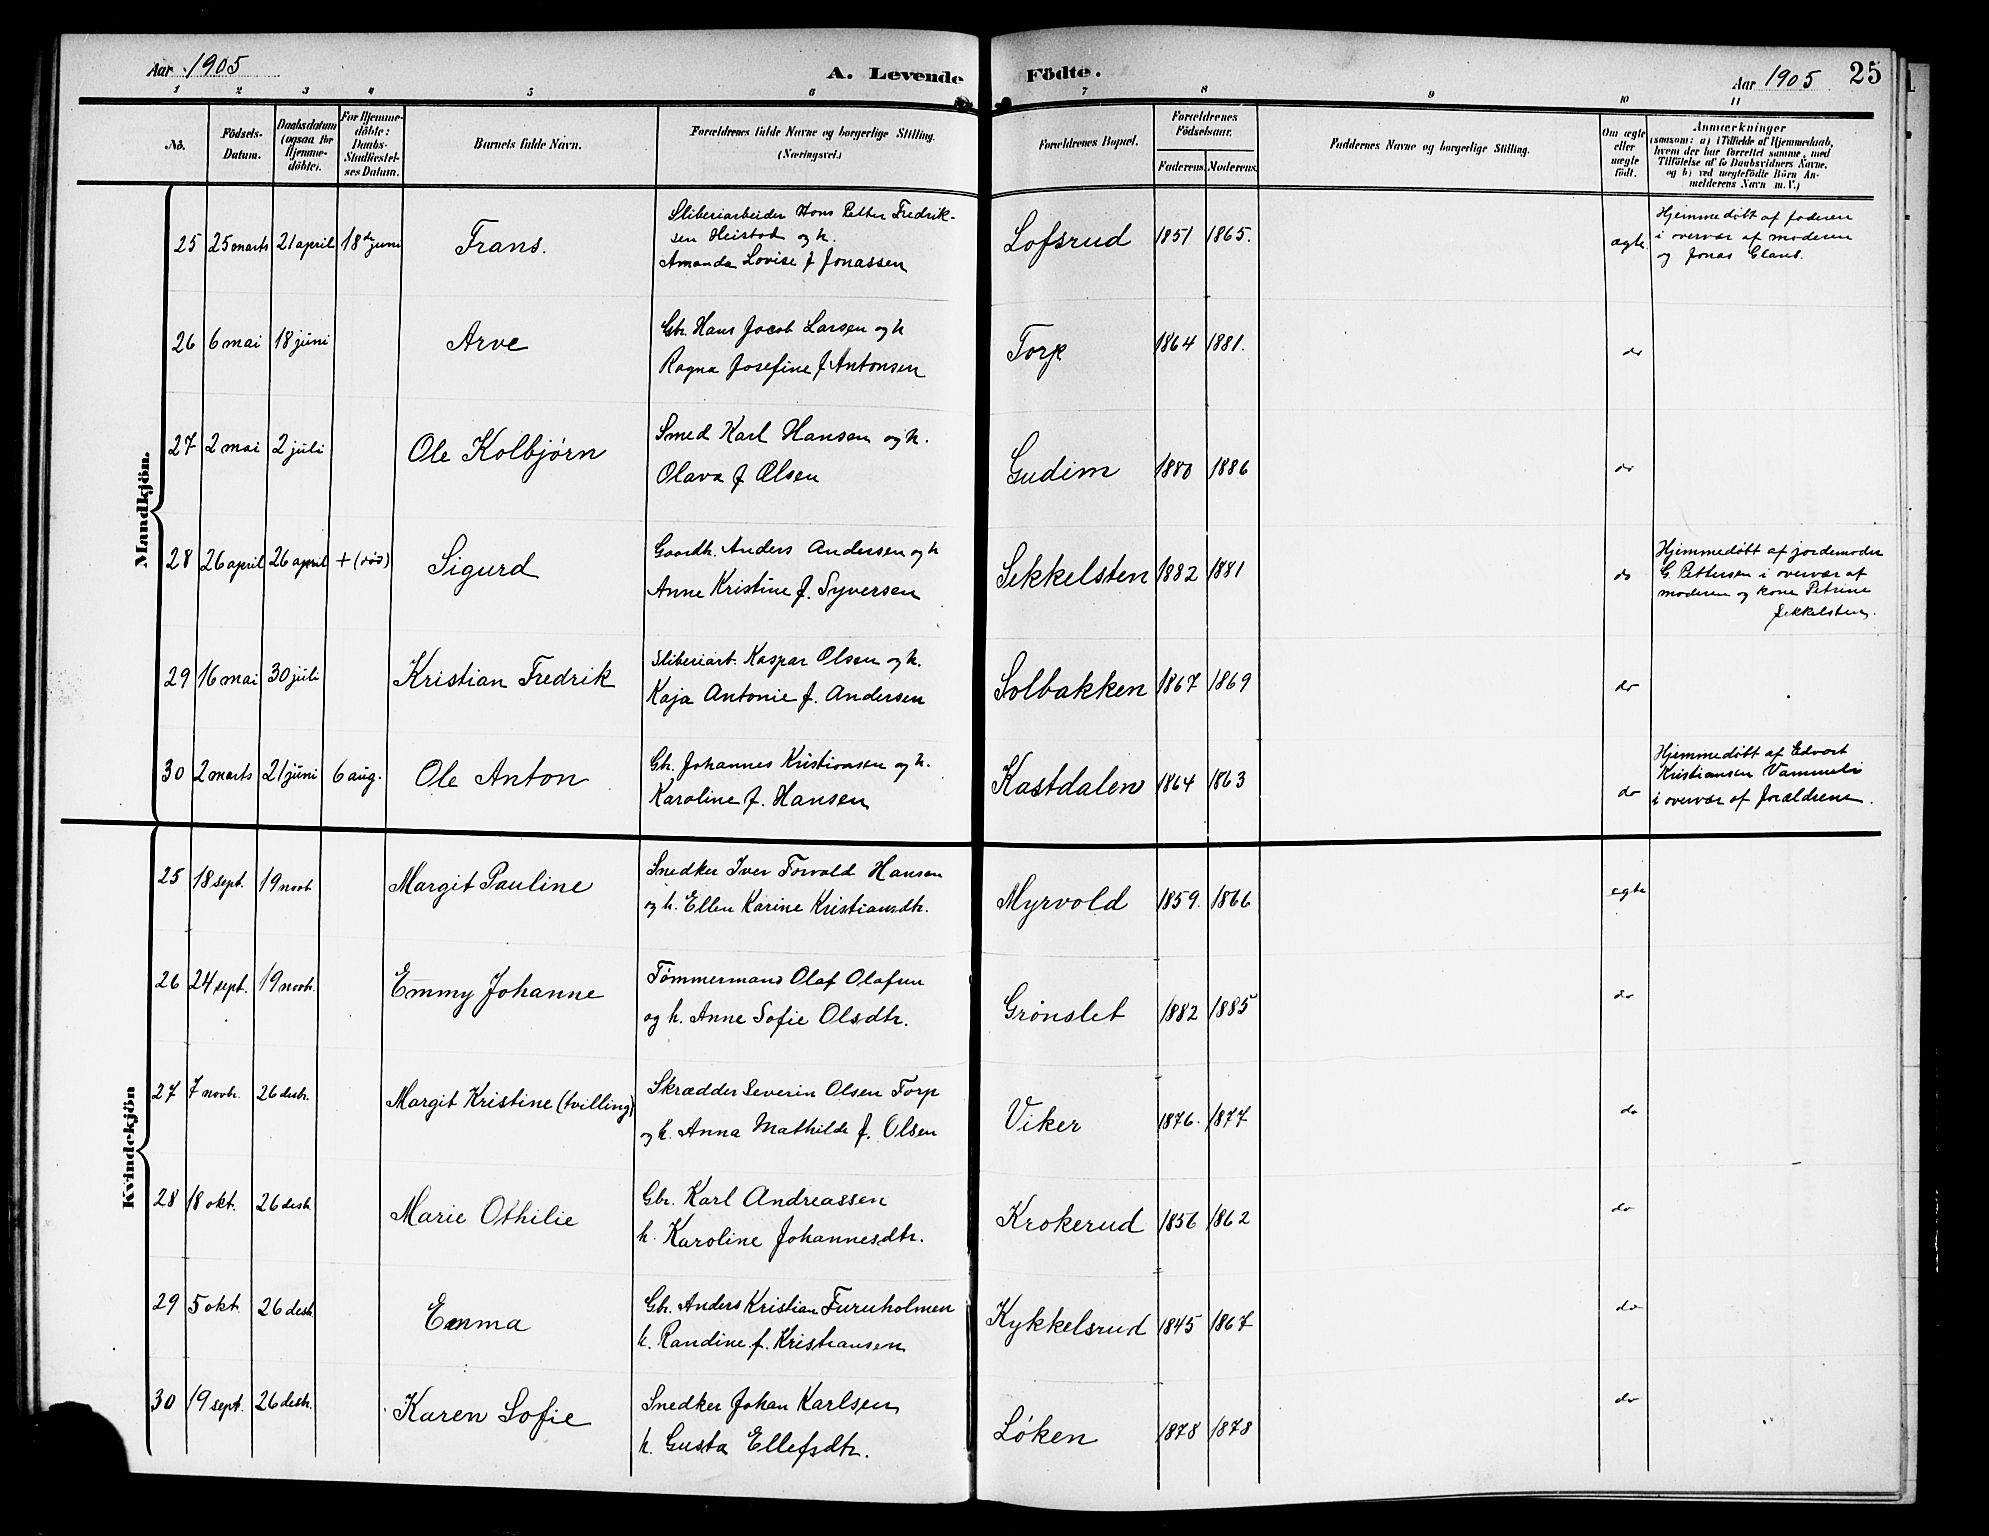 Aar 1905
A. Levende Födte.
Aar 1905
25
1 2 3 4 5 6 7 8 9 10 11
No.
Födsels-Datum.
Daabsdatum (ogsaa for Hjemmedöbte).
For Hjemmedöbte: Daabs-Stadfæstelses Datum.
Barnets fulde Navn.
Forældrenes fulde Navne og borgerlige Stilling.
(Næringsvei.)
Forældrenes Bopæl.
Forældrenes Födselsaar.
Faderens. Moderens.
Faddernes Navne og borgerlige Stilling.
Om ægte eller uægte födt.
Anmærkninger
(saasom: a) i Tilfælde af Hjemmedaab,
hvem der har forrettet samme, med
Tilföielse af to Daabsvidners Navne,
og b) ved uægtefödte Börn An-
melderens Navn m. V.)
Mandkjön.
25 25 marts 21 april 18 juni Frans.
Sliberiarbeider Hans Petter Fredrik-
sen Heistad og h.
Amanda Lovise f Jonassen
Lofsrud 1851 1865. ægte
Hjemmedøbt af faderen
i overvær af moderen
og Jonas Glans.
26 6 mai 18 juni Arve
Gbr. Hans Jacob Larsen og h
Ragna Josefine f Antonsen
Torp 1864 1881. do
27 2 mai 2 juli Ole Kolbjørn
Smed Karl Hansen og h.
Olava f Olsen
Gudim 1880 1886 do
28 26 april 26 april + (død) Sigurd
Gaardbr. Anders Andersen og h
Anne Kristine f. Syversen
Sekkelsten 1882 1881 do
Hjemmedøbt af jordemoder
G. Pettersen i overvær af
moderen og kone Petrine
Sekkelsten.
29 16 mai 30 juli Kristian Fredrik
Sliberiarb. Kaspar Olsen og h.
Kaja Antonie f. Andersen
Solbakken 1867 1869 do
30 2 marts 21 juni 6 aug. Ole Anton
Gbr. Johannes Kristiansen og h.
Karoline f. Hansen
Kastdalen 1864 1863 do
Hjemmedøbt af Edvart
Kristiansen Vammeli
i overvær af forældrene.
Kvindekjön
25 18 sept. 19 novb. Margit Pauline
Snedker Iver Torvald Hansen
og h. Ellen Karine Kristiansdtr.
Myrvold 1859. 1866 egte
26 24 sept. 19 novb. Emmy Johanne
Tømmermand Olaf Olafsen
og h. Anne Sofie Olsdtr.
Grønslet 1882 1885 do
27 7 novb. 26 desb. Margit Kristine (tvilling)
Skrædder Severin Olsen Torp
og h. Anna Mathilde f. Olsen
Viker 1876. 1877 do
28 18 okt. 26 desb. Marie Othilie
Gbr. Karl Andreassen
h. Karoline Johannesdtr.
Krokerud 1856 1862 do
29 5 okt. 26 desb. Emma
Gbr. Anders Kristian Furuholmen
h. Randine f. Kristiansen
Kykkelsrud 1845 1867 do
30 19 sept. 26 desb. Karen Sofie
Snedker Johan Karlsen
h. Gusta Ellefsdtr.
Løken 1878 1878 do